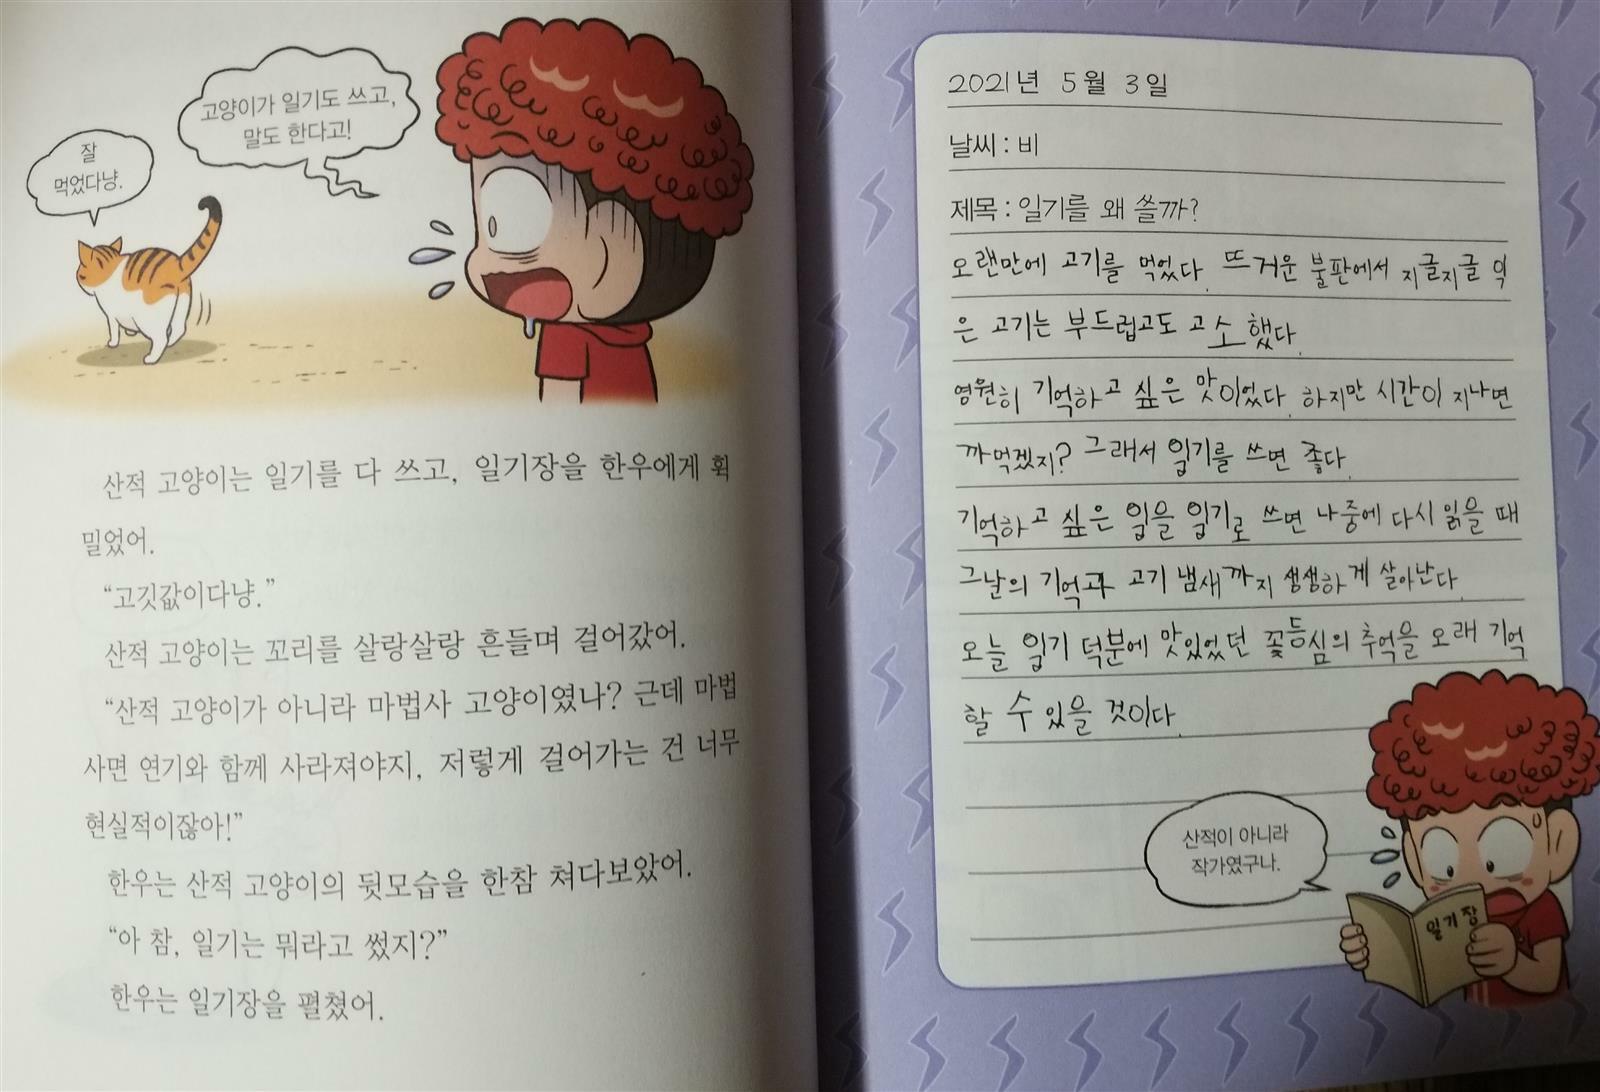 고양이가 일기도 쓰고,
말도 한다고!
잘
먹었다냥.
산적 고양이는 일기를 다 쓰고, 일기장을 한우에게 휙
밀었어.
“고깃값이다냥.”
산적 고양이는 꼬리를 살랑살랑 흔들며 걸어갔어.
“산적 고양이가 아니라 마법사 고양이였나? 근데 마법
사면 연기와 함께 사라져야지, 저렇게 걸어가는 건 너무
현실적이잖아!”
한우는 산적 고양이의 뒷모습을 한참 쳐다보았어.
“아 참, 일기는 뭐라고 썼지?”
한우는 일기장을 펼쳤어.
2021년 5월 3일
날씨 : 비
제목 : 일기를 왜 쓸까?
오랜만에 고기를 먹었다. 뜨거운 불판에서 지글지글 익
은 고기는 부드럽고도 고소했다.
영원히 기억하고 싶은 맛이었다. 하지만 시간이 지나면
까먹겠지? 그래서 일기를 쓰면 좋다.
기억하고 싶은 일을 일기로 쓰면 나중에 다시 읽을 때
그날의 기억과 고기 냄새까지 생생하게 살아난다.
오늘 일기 덕분에 맛있었던 꽃등심의 추억을 오래 기억
할 수 있을 것이다.
산적이 아니라
작가였구나.
일기장